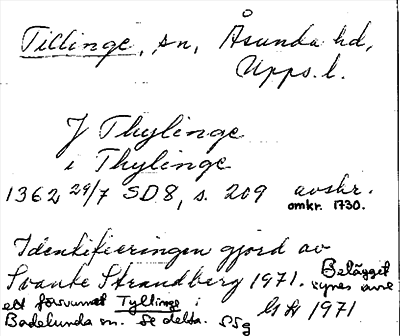 Tillinge, sn, Åsunda hd,
Upps. l.
J Thylinge
i Thylinge
1362 29/7 SD8, s. 209 avskr.
omkr. 1730.
Identifieringen gjord av
Svante Strandberg 1971. Belägget
synes avse
ett försvunnet Tyllinge i
Badelunda sn. Se detta. SSg
1971